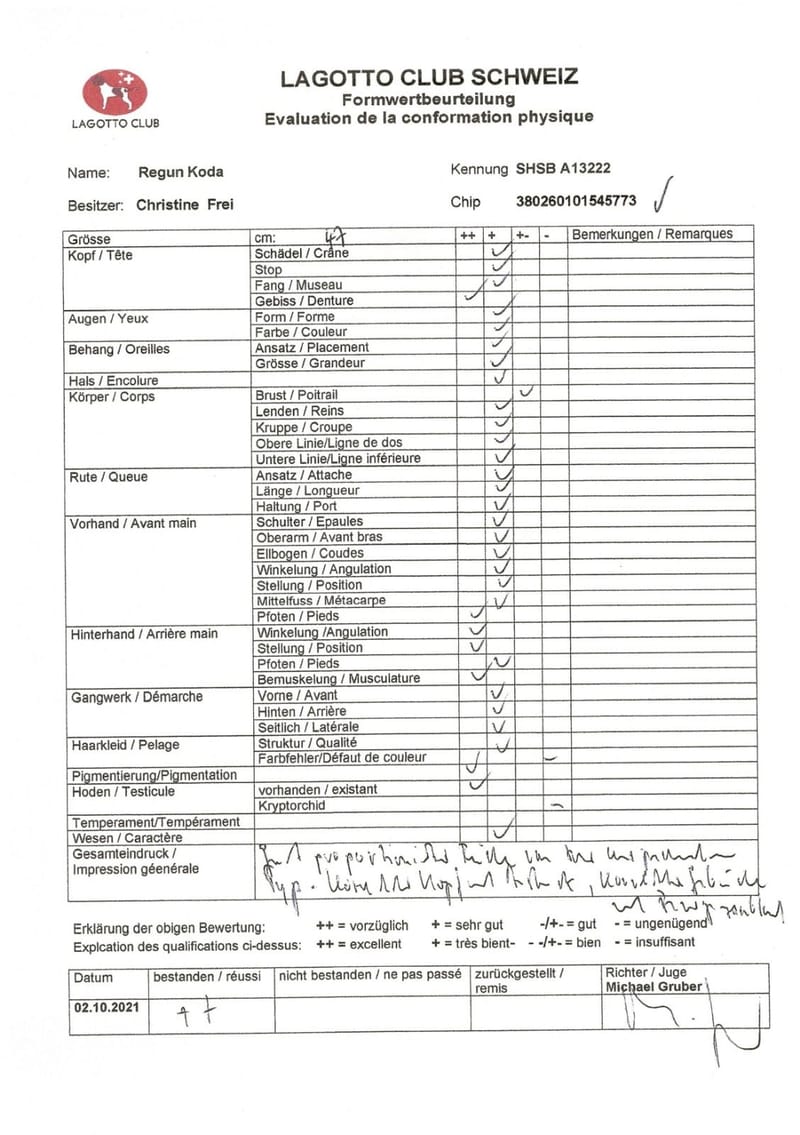 LAGOTTO CLUB
LAGOTTO CLUB SCHWEIZ
Formwertbeurteilung
Evaluation de la conformation physique
Name: Regun Koda Kennung SHSB A13222
Besitzer: Christine Frei Chip 380260101545773 ✓
Grösse cm: 47 ++ + +- - Bemerkungen / Remarques
Kopf / Tête Schädel / Crâne ✓
Stop ✓
Fang / Museau ✓
Gebiss / Denture ✓
Augen / Yeux Form / Forme ✓
Farbe / Couleur ✓
Behang / Oreilles Ansatz / Placement ✓
Grösse / Grandeur ✓
Hals / Encolure ✓
Körper / Corps Brust / Poitrail ✓
Lenden / Reins ✓
Kruppe / Croupe ✓
Obere Linie/Ligne de dos ✓
Untere Linie/Ligne inférieure ✓
Rute / Queue Ansatz / Attache ✓
Länge / Longueur ✓
Haltung / Port ✓
Vorhand / Avant main Schulter / Epaules ✓
Oberarm / Avant bras ✓
Ellbogen / Coudes ✓
Winkelung / Angulation ✓
Stellung / Position ✓
Mittelfuss / Métacarpe ✓
Pfoten / Pieds ✓
Hinterhand / Arrière main Winkelung /Angulation ✓
Stellung / Position ✓
Pfoten / Pieds ✓
Bemuskelung / Musculature ✓
Gangwerk / Démarche Vorne / Avant ✓
Hinten / Arrière ✓
Seitlich / Latérale ✓
Haarkleid / Pelage Struktur / Qualité ✓
Farbfehler/Défaut de couleur -
Pigmentierung/Pigmentation ✓
Hoden / Testicule vorhanden / existant ✓
Kryptorchid -
Temperament/Tempérament
Wesen / Caractère ✓
Gesamteindruck /
Impression géenérale
Typ.
Erklärung der obigen Bewertung: ++ = vorzüglich + = sehr gut -/+- = gut - = ungenügend
Explcation des qualifications ci-dessus: ++ = excellent + = très bient- - -/+- = bien - = insuffisant
Datum bestanden / réussi nicht bestanden / ne pas passé zurückgestellt / remis Richter / Juge
Michael Gruber
02.10.2021 ++